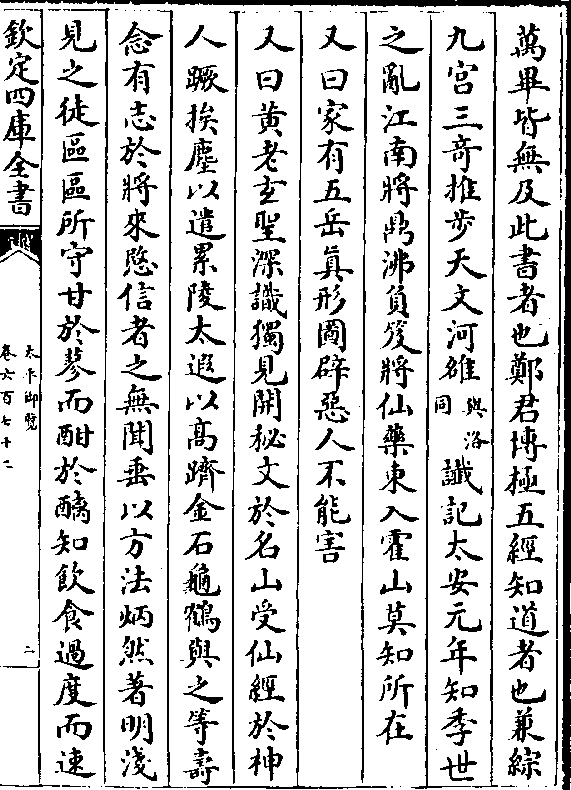 萬畢皆無及此書者也鄭君博極五經知道者也兼綜
九宮三奇推步天文河雒與洛同讖記太安元年知季世
之亂江南將鼎沸負笈將仙藥東入霍山莫知所在
又曰家有五岳真形圖辟惡人不能害
又曰黃老玄聖深識獨見開秘文於名山受仙經於神
人蹶埃塵以遣累陵太遐以高躋金石龜鶴與之等壽
念有志於將來愍信者之無聞垂以方法炳然著明淺
見之徒區區所守甘於蓼而酣於醨知飲食過度而速
欽定四庫全書
太平御覽
卷六百七十二
二